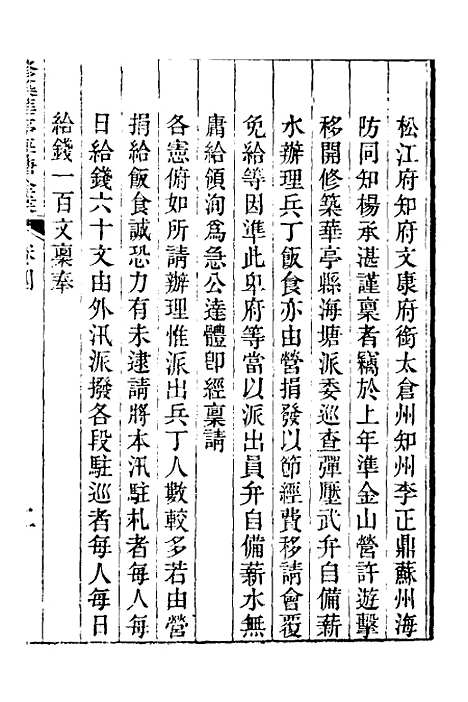 松江府知府文康府銜太倉州知州李正鼎蘇州海
防同知楊承湛謹稟者竊於上年準金山營許遊擊
移開修築華亭縣海塘派委巡查彈壓武弁自備薪
水辦理兵丁飯食亦由營捐發以節經費移請會覆
免給等因準此卑府等當以派出員弁自備薪水無
庸給領洵爲急公達體卽經稟請
各憲俯如所請辦理惟派出兵丁人數較多若由營
捐給飯食誠恐力有未逮請將本汛駐札者每人每
日給錢六十文由外汛派撥各段駐巡者每人每日
給錢一百文稟奉
二